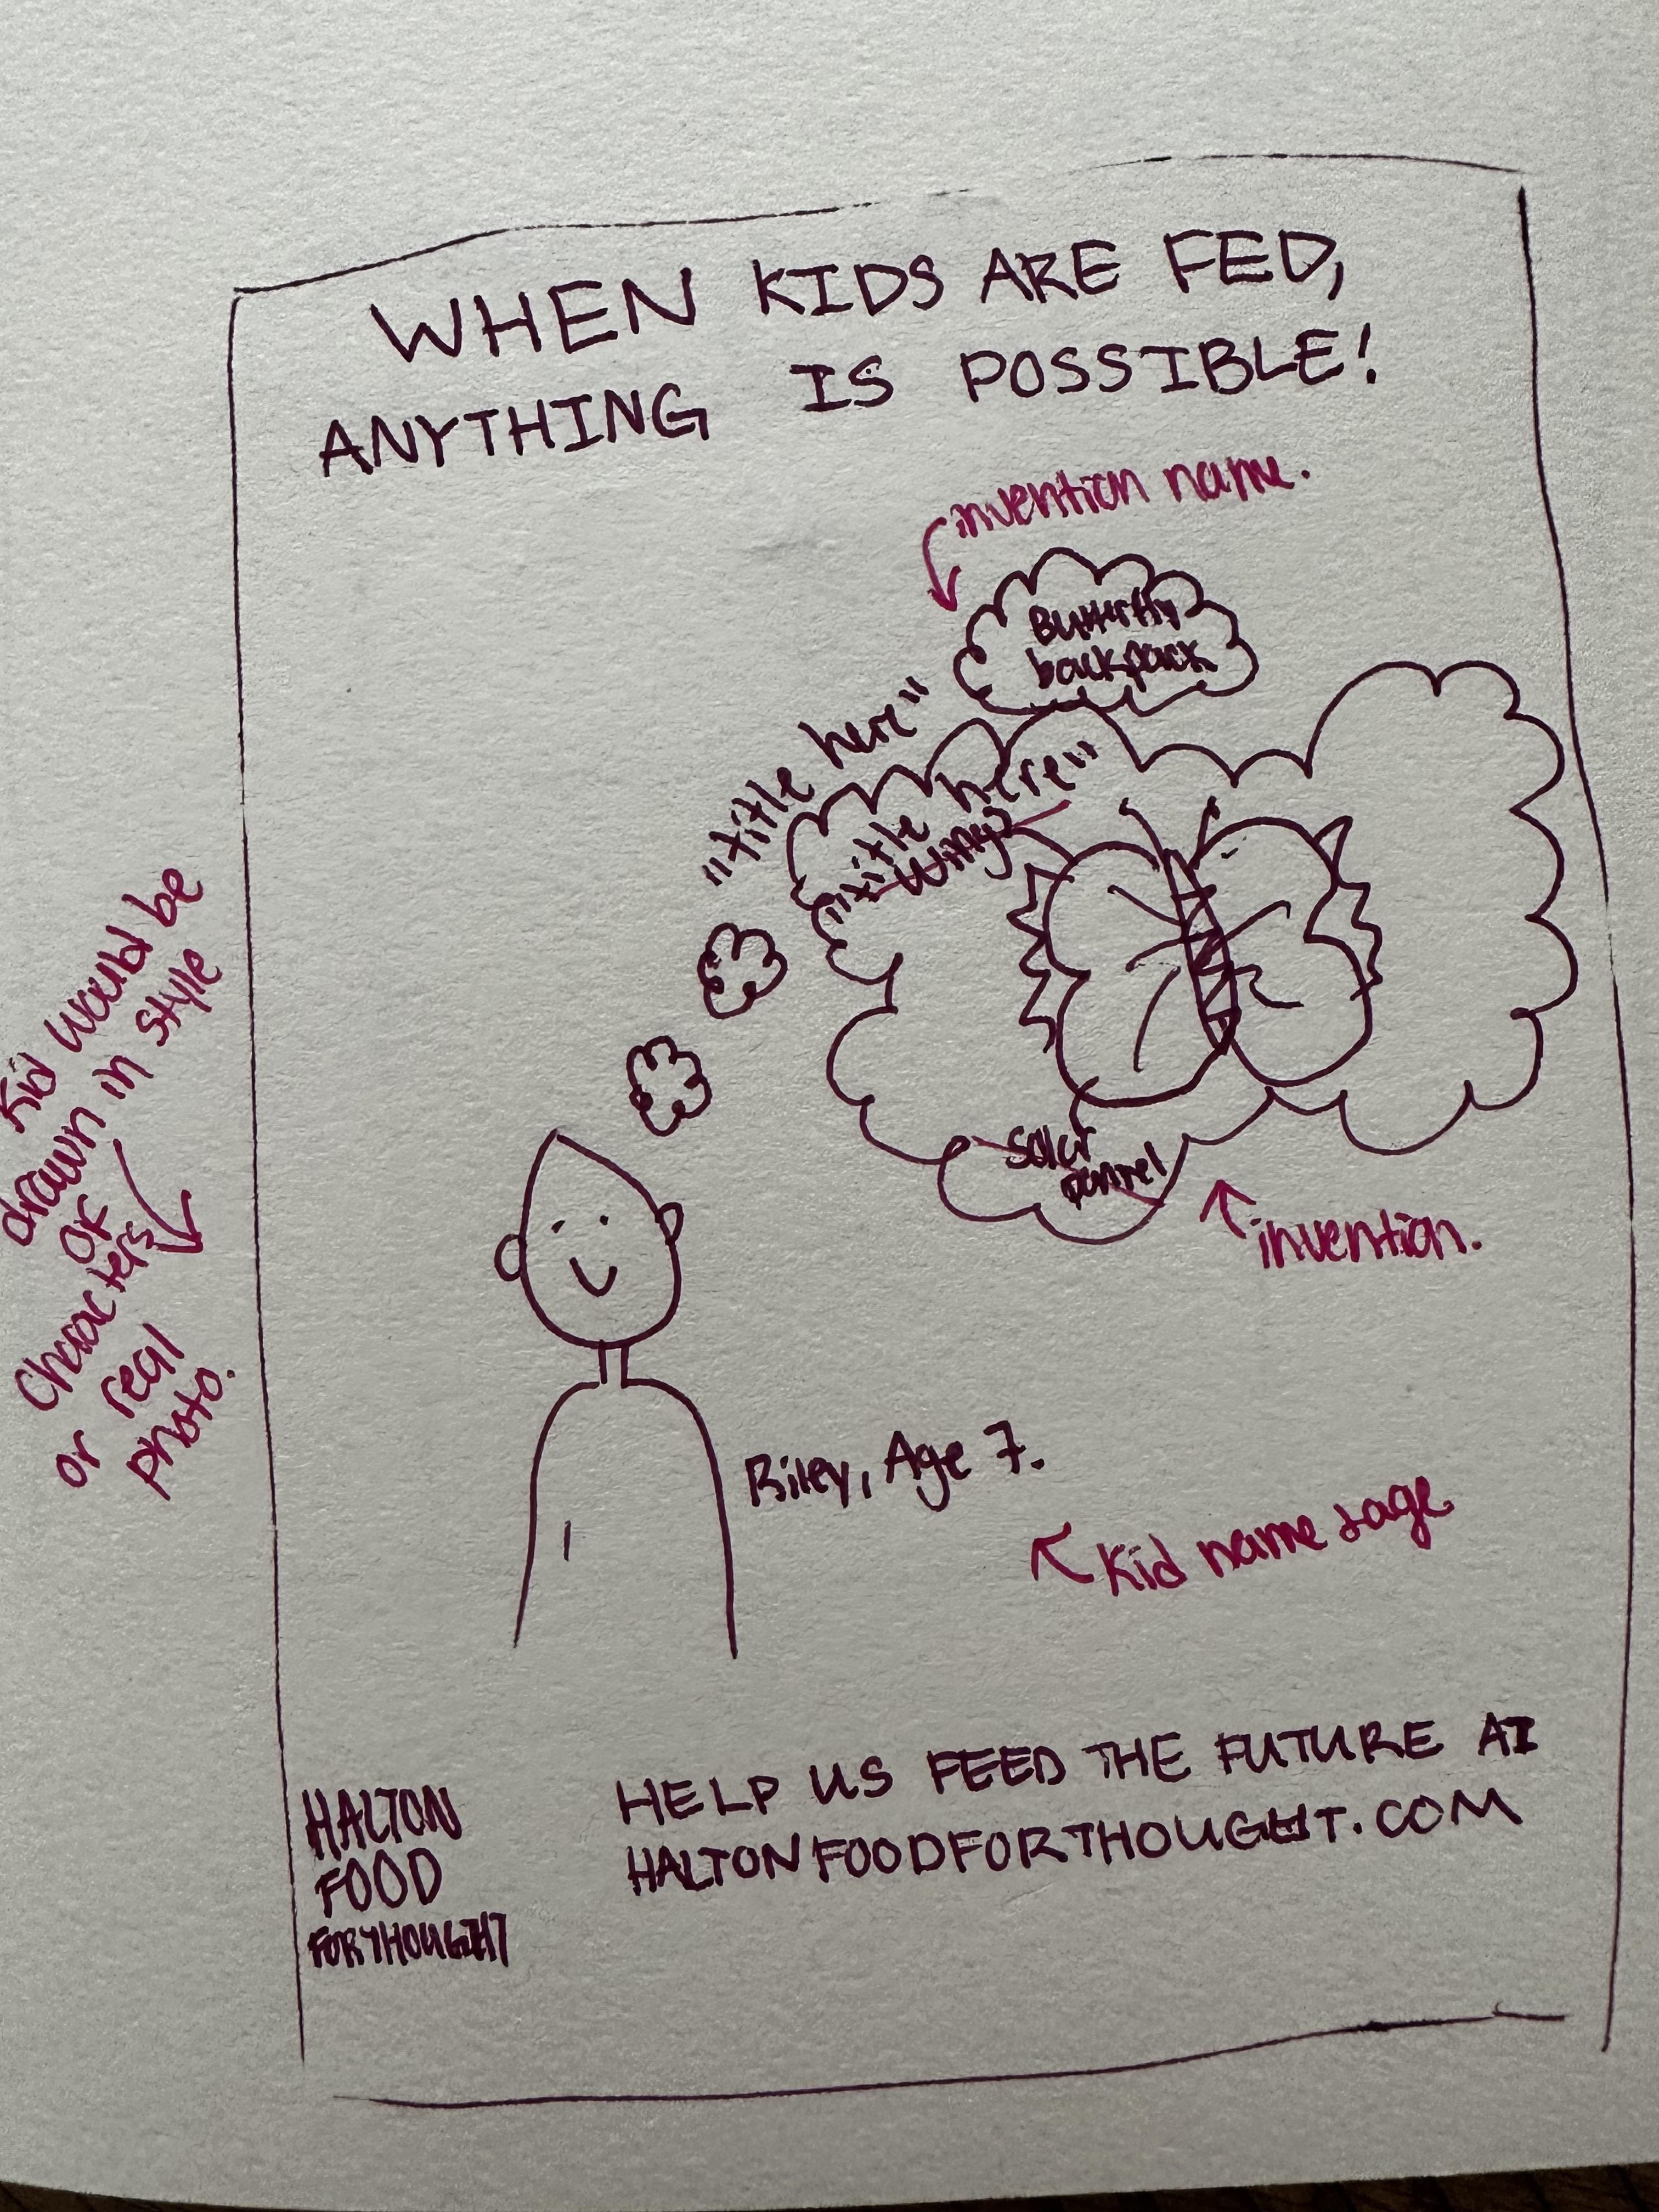 WHEN KIDS ARE FED,
ANYTHING IS POSSIBLE!
invention name.
Butterfly
backpack
"title here"
"title here"
wings
solar
pannel
invention.
Kid would be
drawn in style
of
characters
or real
photo.
Riley, Age 7.
Kid name & age
HALTON
FOOD
FOR THOUGHT
HELP US FEED THE FUTURE AT
HALTONFOODFORTHOUGHT.COM